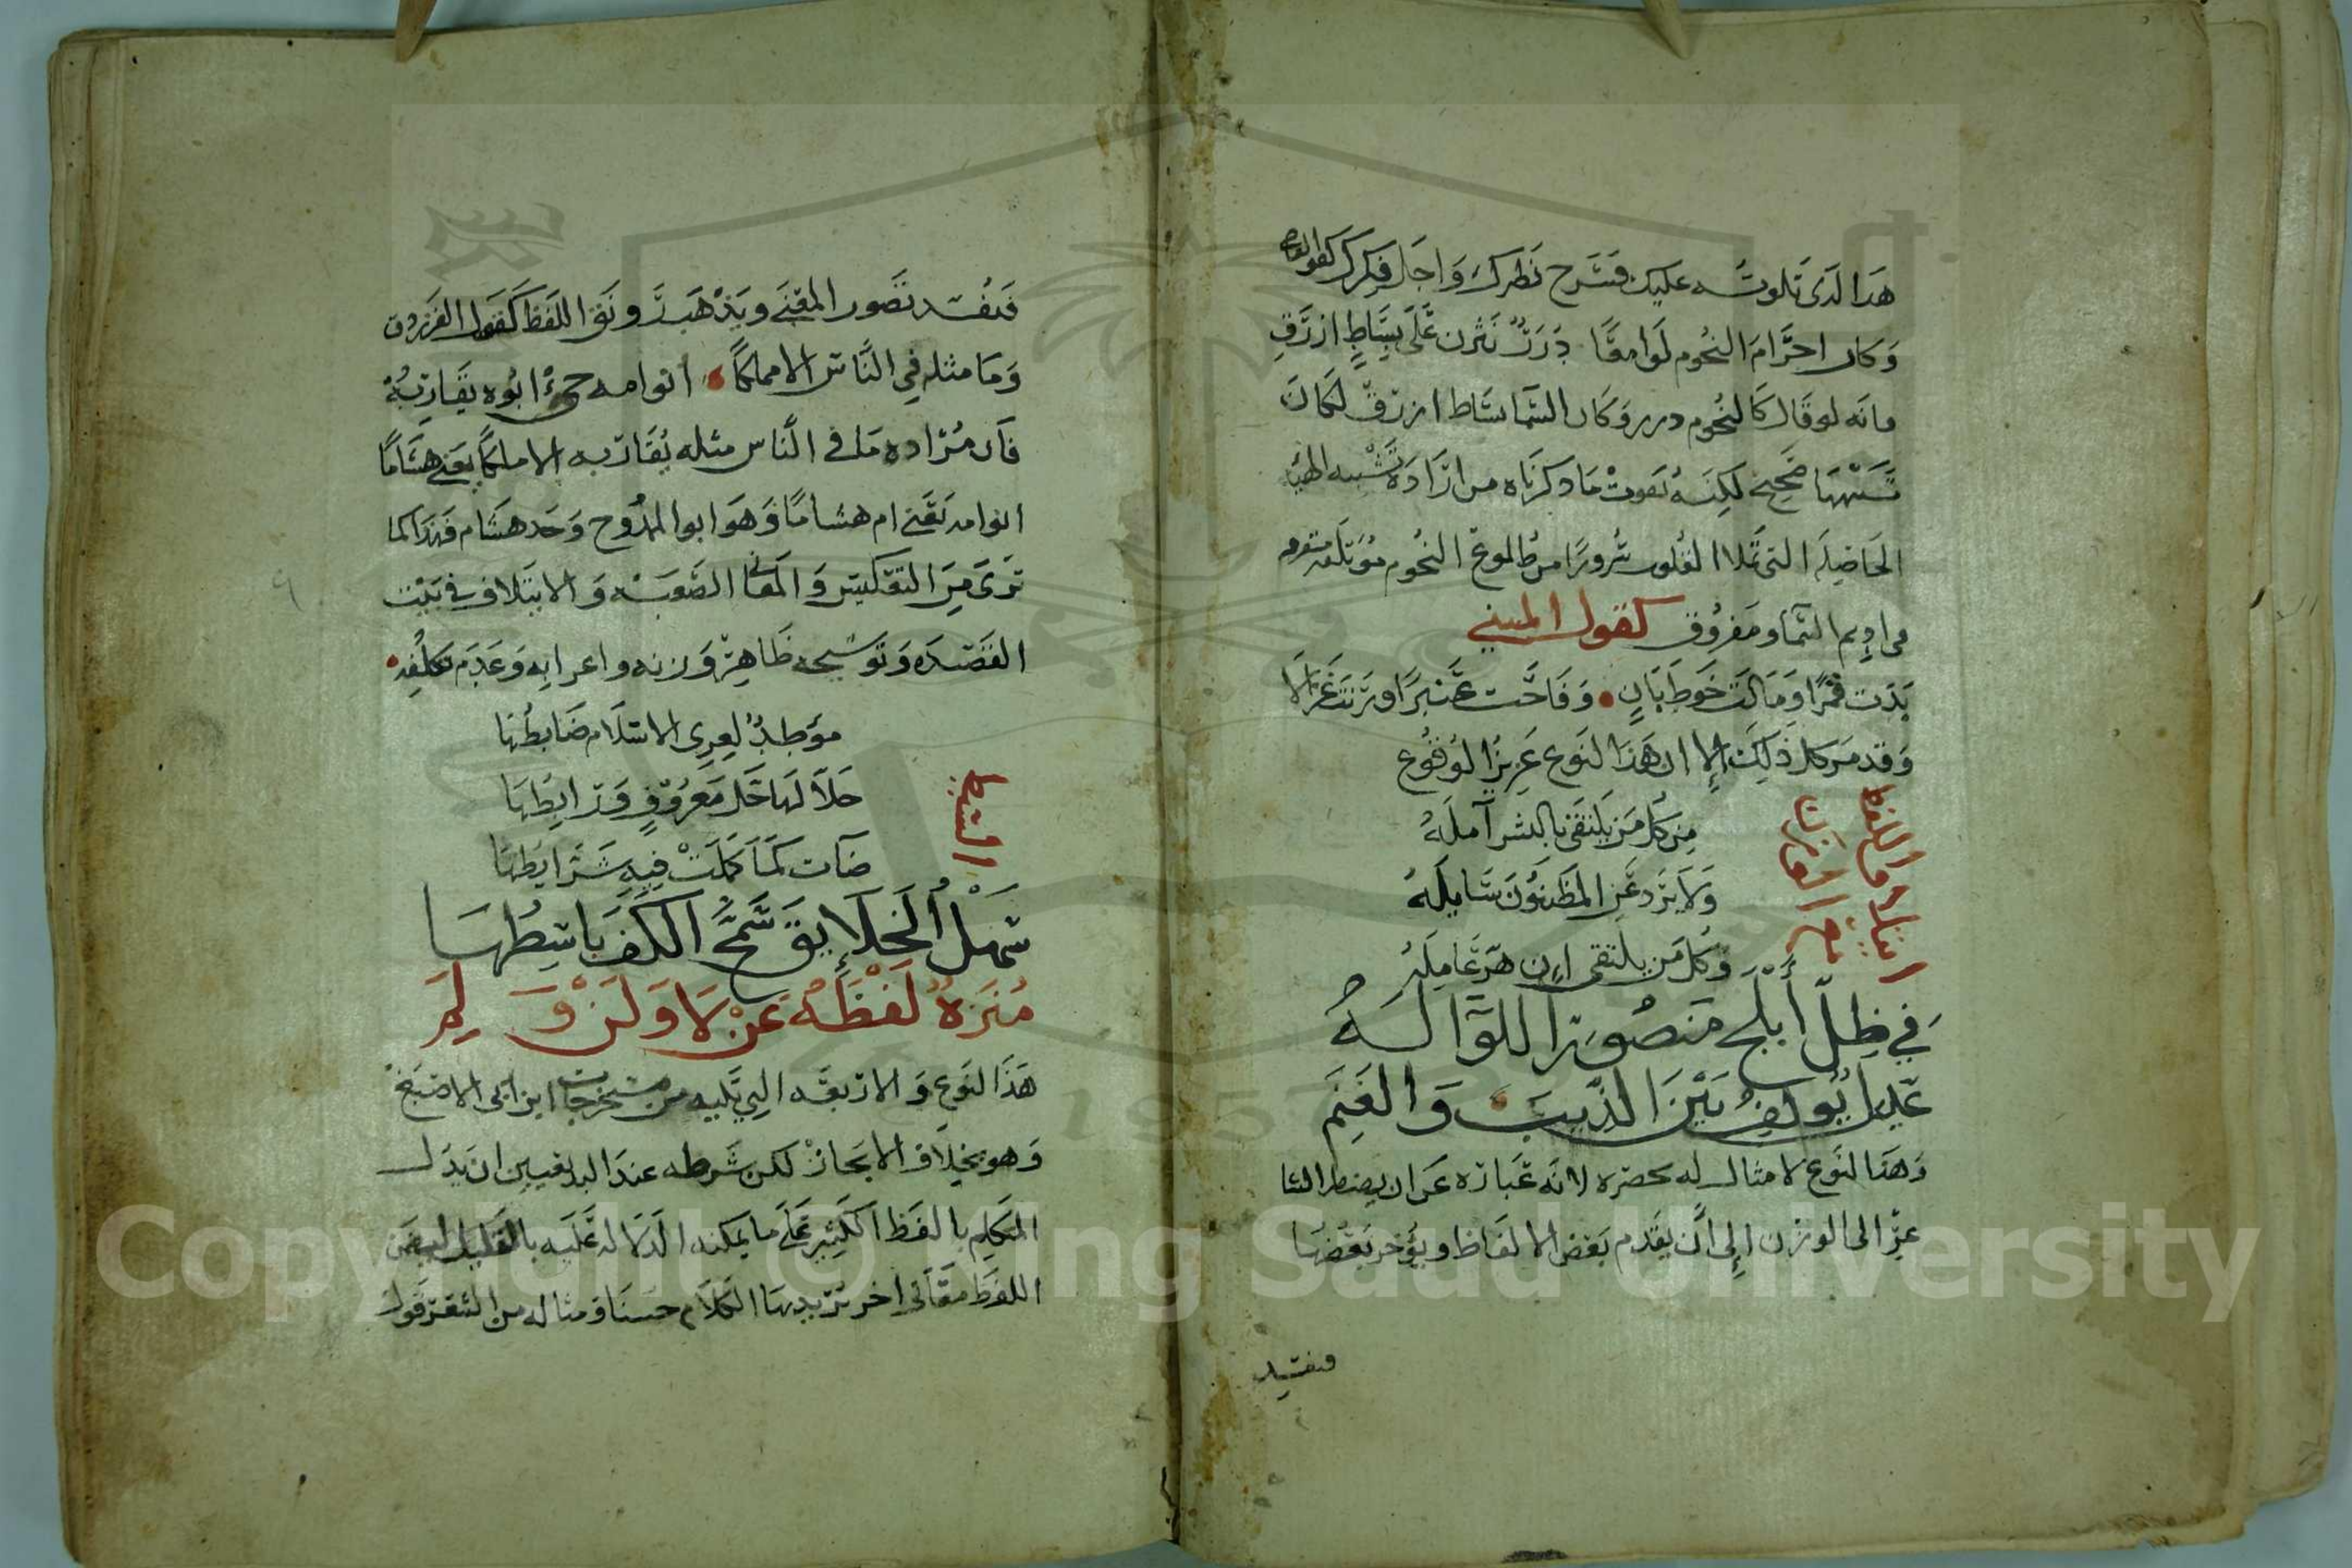 هذا لدى تلوته عليك فسرح نظرك واجل فكرك كقول القاضي
وكان اجرام النجوم لوامعا درر نثرن على بساط ازرق
فانه لو قال كالنجوم درر وكان السما بساط ازرق لكان
تشبيها صحيح لكنه يفوت ما ذكرناه من ارادة تشبيه الهيا
الحاصله التى تملا القلوب سرورا من طلوع النجوم موتلقه متفرقه
فى اديم السما ومفروق كقول المتنبي
بدت قمرا ومالت خوط بان وفاحت عنبرا ورنت غزالا
وقد مر كل ذلك الا ان هذا النوع عزيز الوقوع
ايتلاف اللفظ
مع الوزن
من كل من يلتقى بالبشر آمله
ولا يرد عن المظنون سايله
وكل من يلتقى اين هز عامله
في ظل أبلج منصور اللوآ له
عدل يولف بين الذيب والغنم
وهذا النوع لا مثال له يحصره لانه عبارة عن ان يضطر الشا
عر الى الوزن إلى ان يقدم بعض الالفاظ ويؤخر بعضها
فنفسد
فنفسد تصور المعنى ويذهب رونق اللفظ كقول الفرزدق
وما مثله في الناس الا مملكا ابو امه حي ابوه يقاربه
فان مراده ما فى الناس مثله يقاربه الا مملكا يعنى هشاما
ابو امه يعني ام هشاما وهو ابو الممدوح وجد هشام فهذا كما
ترى من التعكيس والمعانى الصعبه والايتلاف في بيت
القصيده وتوشيحه ظاهر وزنه واعرابه وعدم تكلفه
البسط
موطد لعرى الاسلام ضابطها
حلا لها خل معروف ورابطها
ضآت كما كملت فيه شرايطها
سهل الخلايق سمح الكف باسطها
منزه لفظه عن لا ولن و لم
هذا النوع والاربعه التي تليه من مستخرجات ابن ابى الاصبع
وهو بخلاف الايجاز لكن شرطه عند البديعيين ان يدل
المتكلم بالفظ الكثير على ما يمكنه الدلاله عليه بالقليل ليضمن
اللفظ معانى اخر يزيد بها الكلام حسنا ومثاله من الشعر قول
Copyright © King Saud University
1957